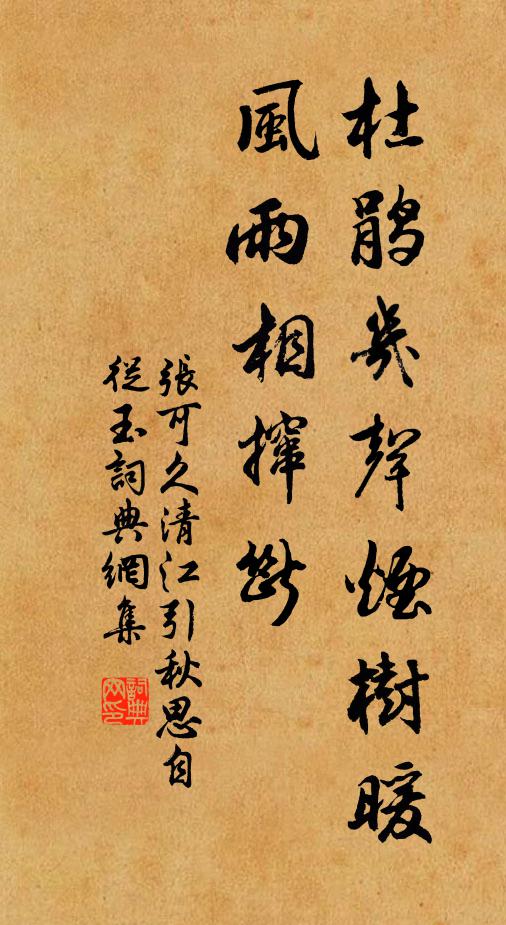 杜鵑幾聲煙樹暖
風雨相攛斷
張可久清江引秋思自
從玉詞典網集
詞典
网印